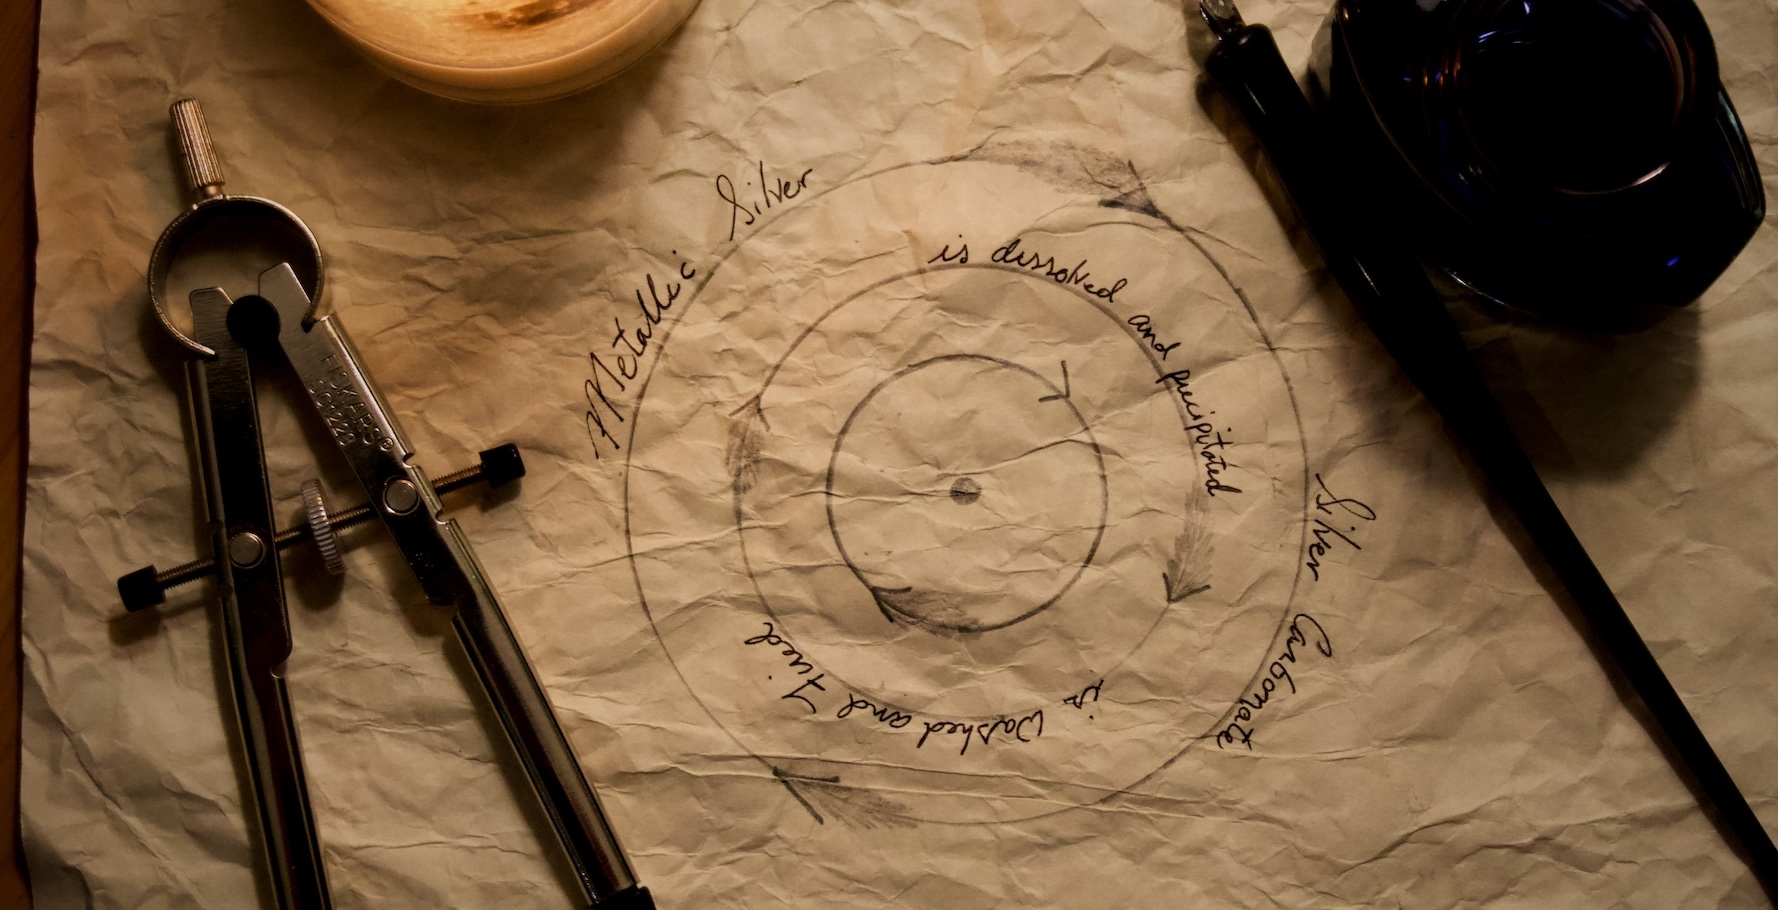 Metallic Silver
is dissolved and precipitated
Silver Carbonate
is Washed and Fired
FISKARS®